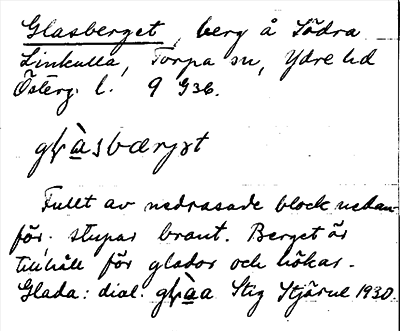 Glasberget, berg å Södra
Linkulla, Torpa sn, Ydre hd
Österg. l. 9 G36.
Fullt av nedrasade block nedan-
för, stupar brant. Berget är
tillhåll för glador och hökar.
Glada: dial. Stig Stjärne 1930.